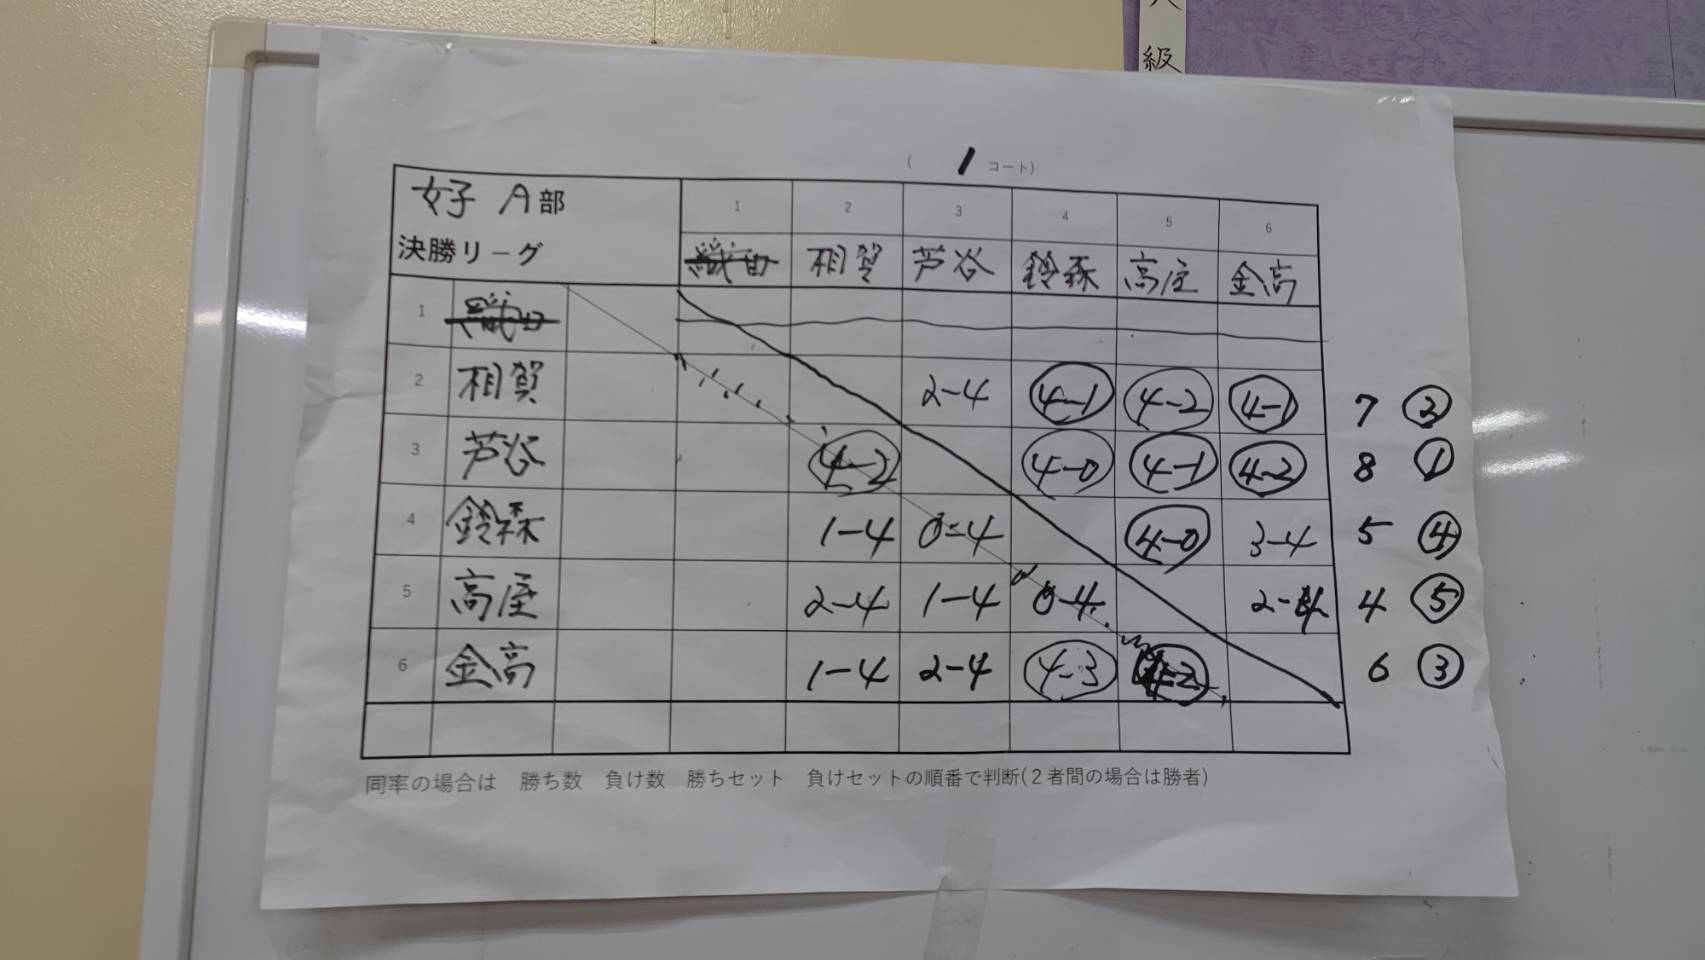 級
( 1 コート)
女子 A部 1 2 3 4 5 6
決勝リーグ 織田 相賀 芦谷 鈴森 高座 金高
1
2 相賀 2-4 4-1 4-2 4-1 7 ②
3 芦谷 4-2 4-0 4-1 4-2 8 ①
4 鈴森 1-4 0-4 4-0 3-4 5 ④
5 高座 2-4 1-4 0-4 2-4 4 ⑤
6 金高 1-4 2-4 4-3 4-2 6 ③
同率の場合は 勝ち数 負け数 勝ちセット 負けセットの順番で判断(2者間の場合は勝者)